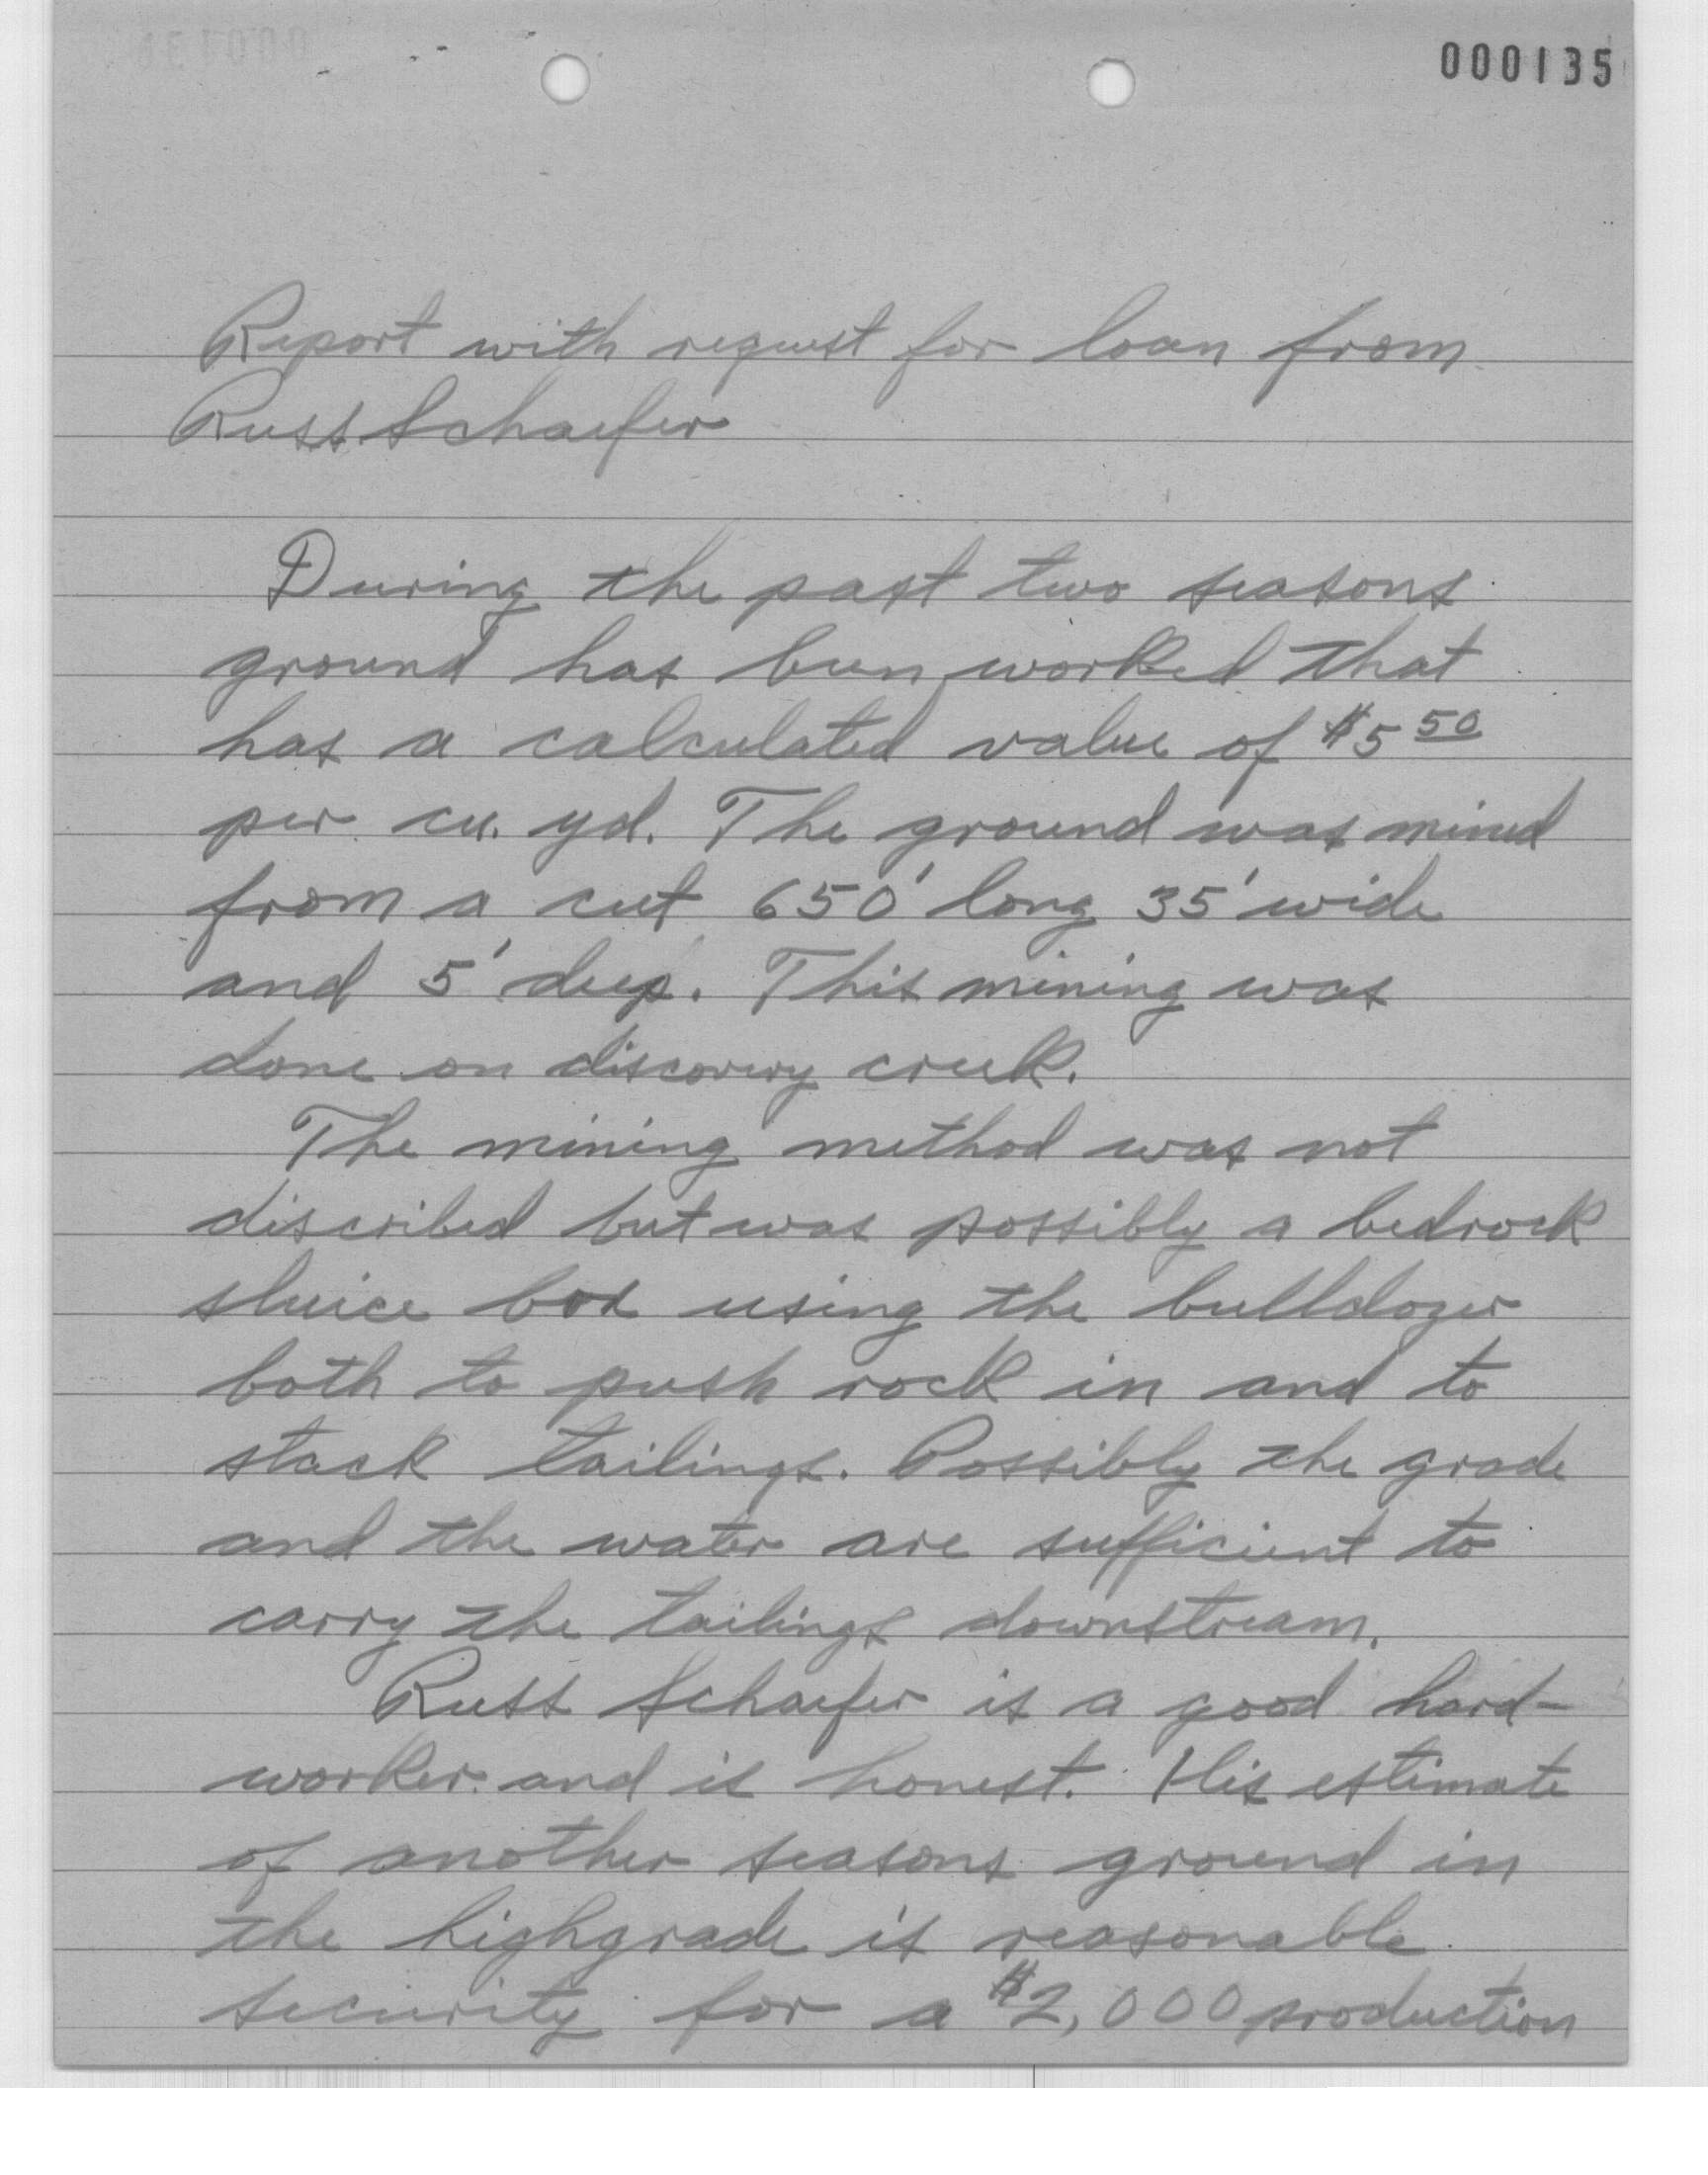 000135
Report with request for loan from
Russ Schaefer
During the past two seasons
ground has been worked that
has a calculated value of $5 50
per cu. yd. The ground was mined
from a cut 650' long 35' wide
and 5' deep. This mining was
done on discovery creek.
The mining method was not
discribed but was possibly a bedrock
sluice box using the bulldozer
both to push rock in and to
stack tailings. Possibly the grade
and the water are sufficient to
carry the tailings downstream.
Russ Schaefer is a good hard-
worker and is honest. His estimate
of another seasons ground in
the highgrade is reasonable
security for a $2,000 production